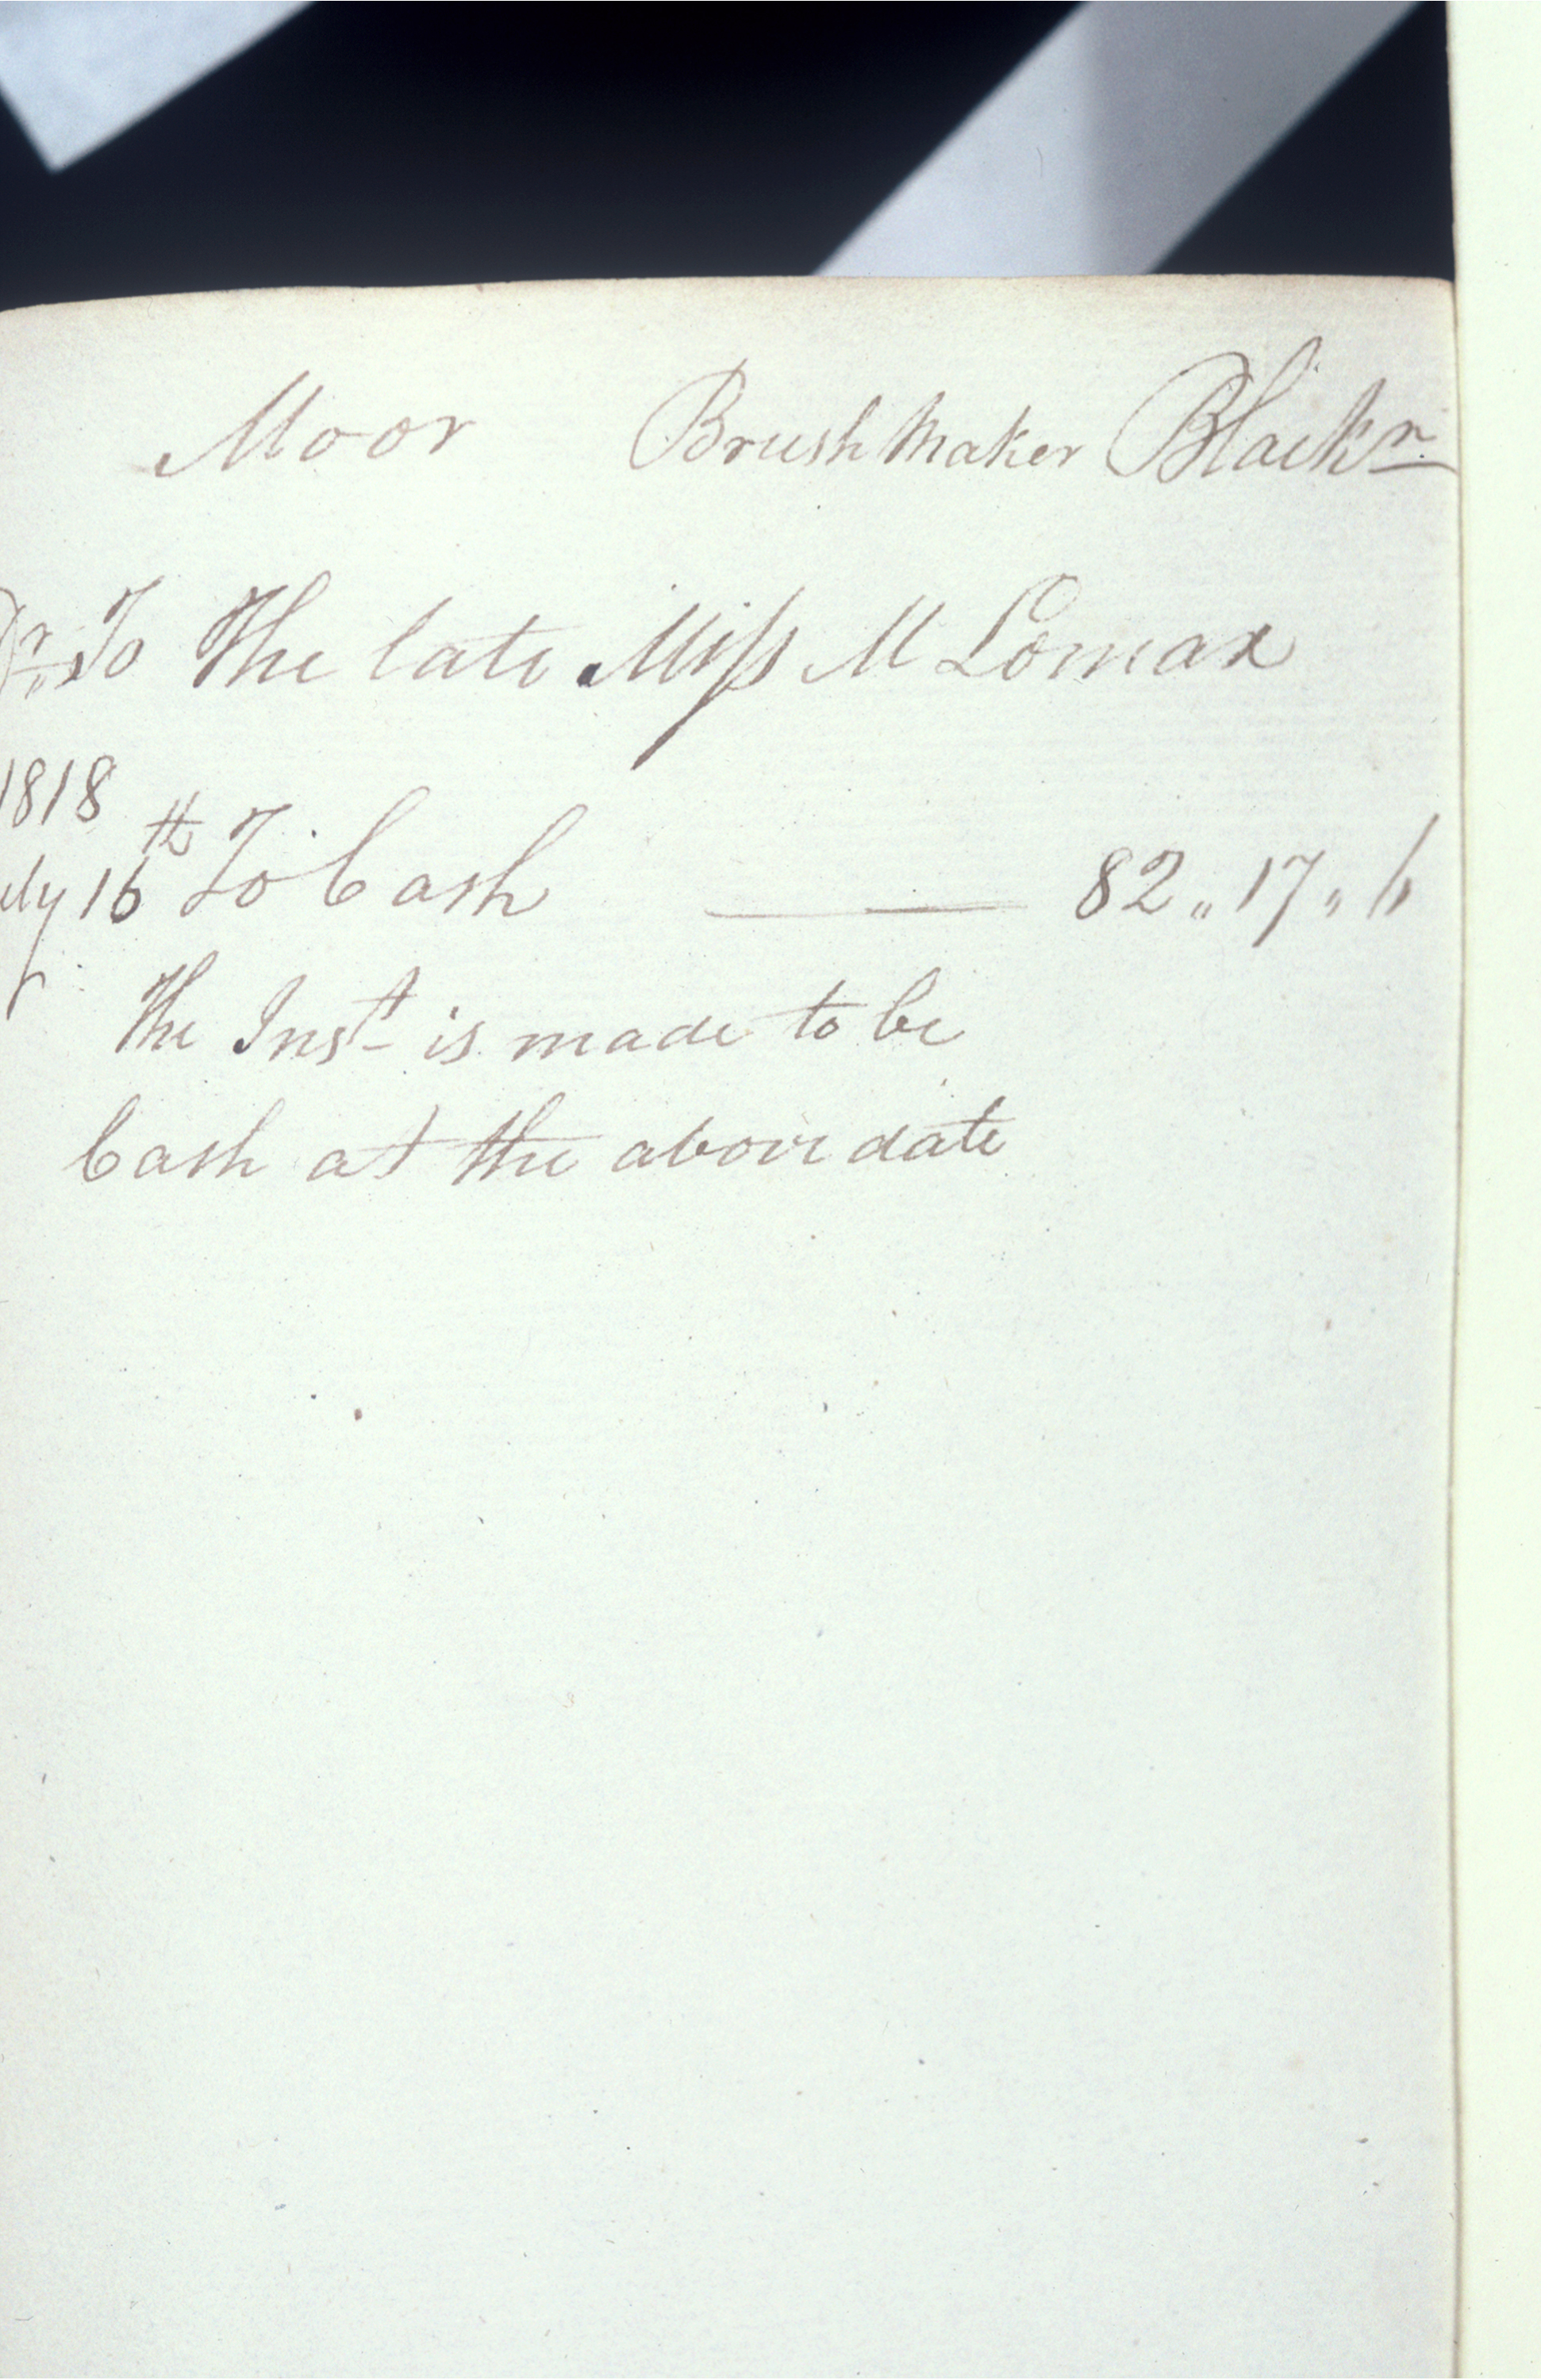 Moor Brush Maker Blackn
Dr To The late Miss M Lomax
1818
uly 16th To Cash 82 „ 17 „ 6
The Inst is made to be
Cash at the above date